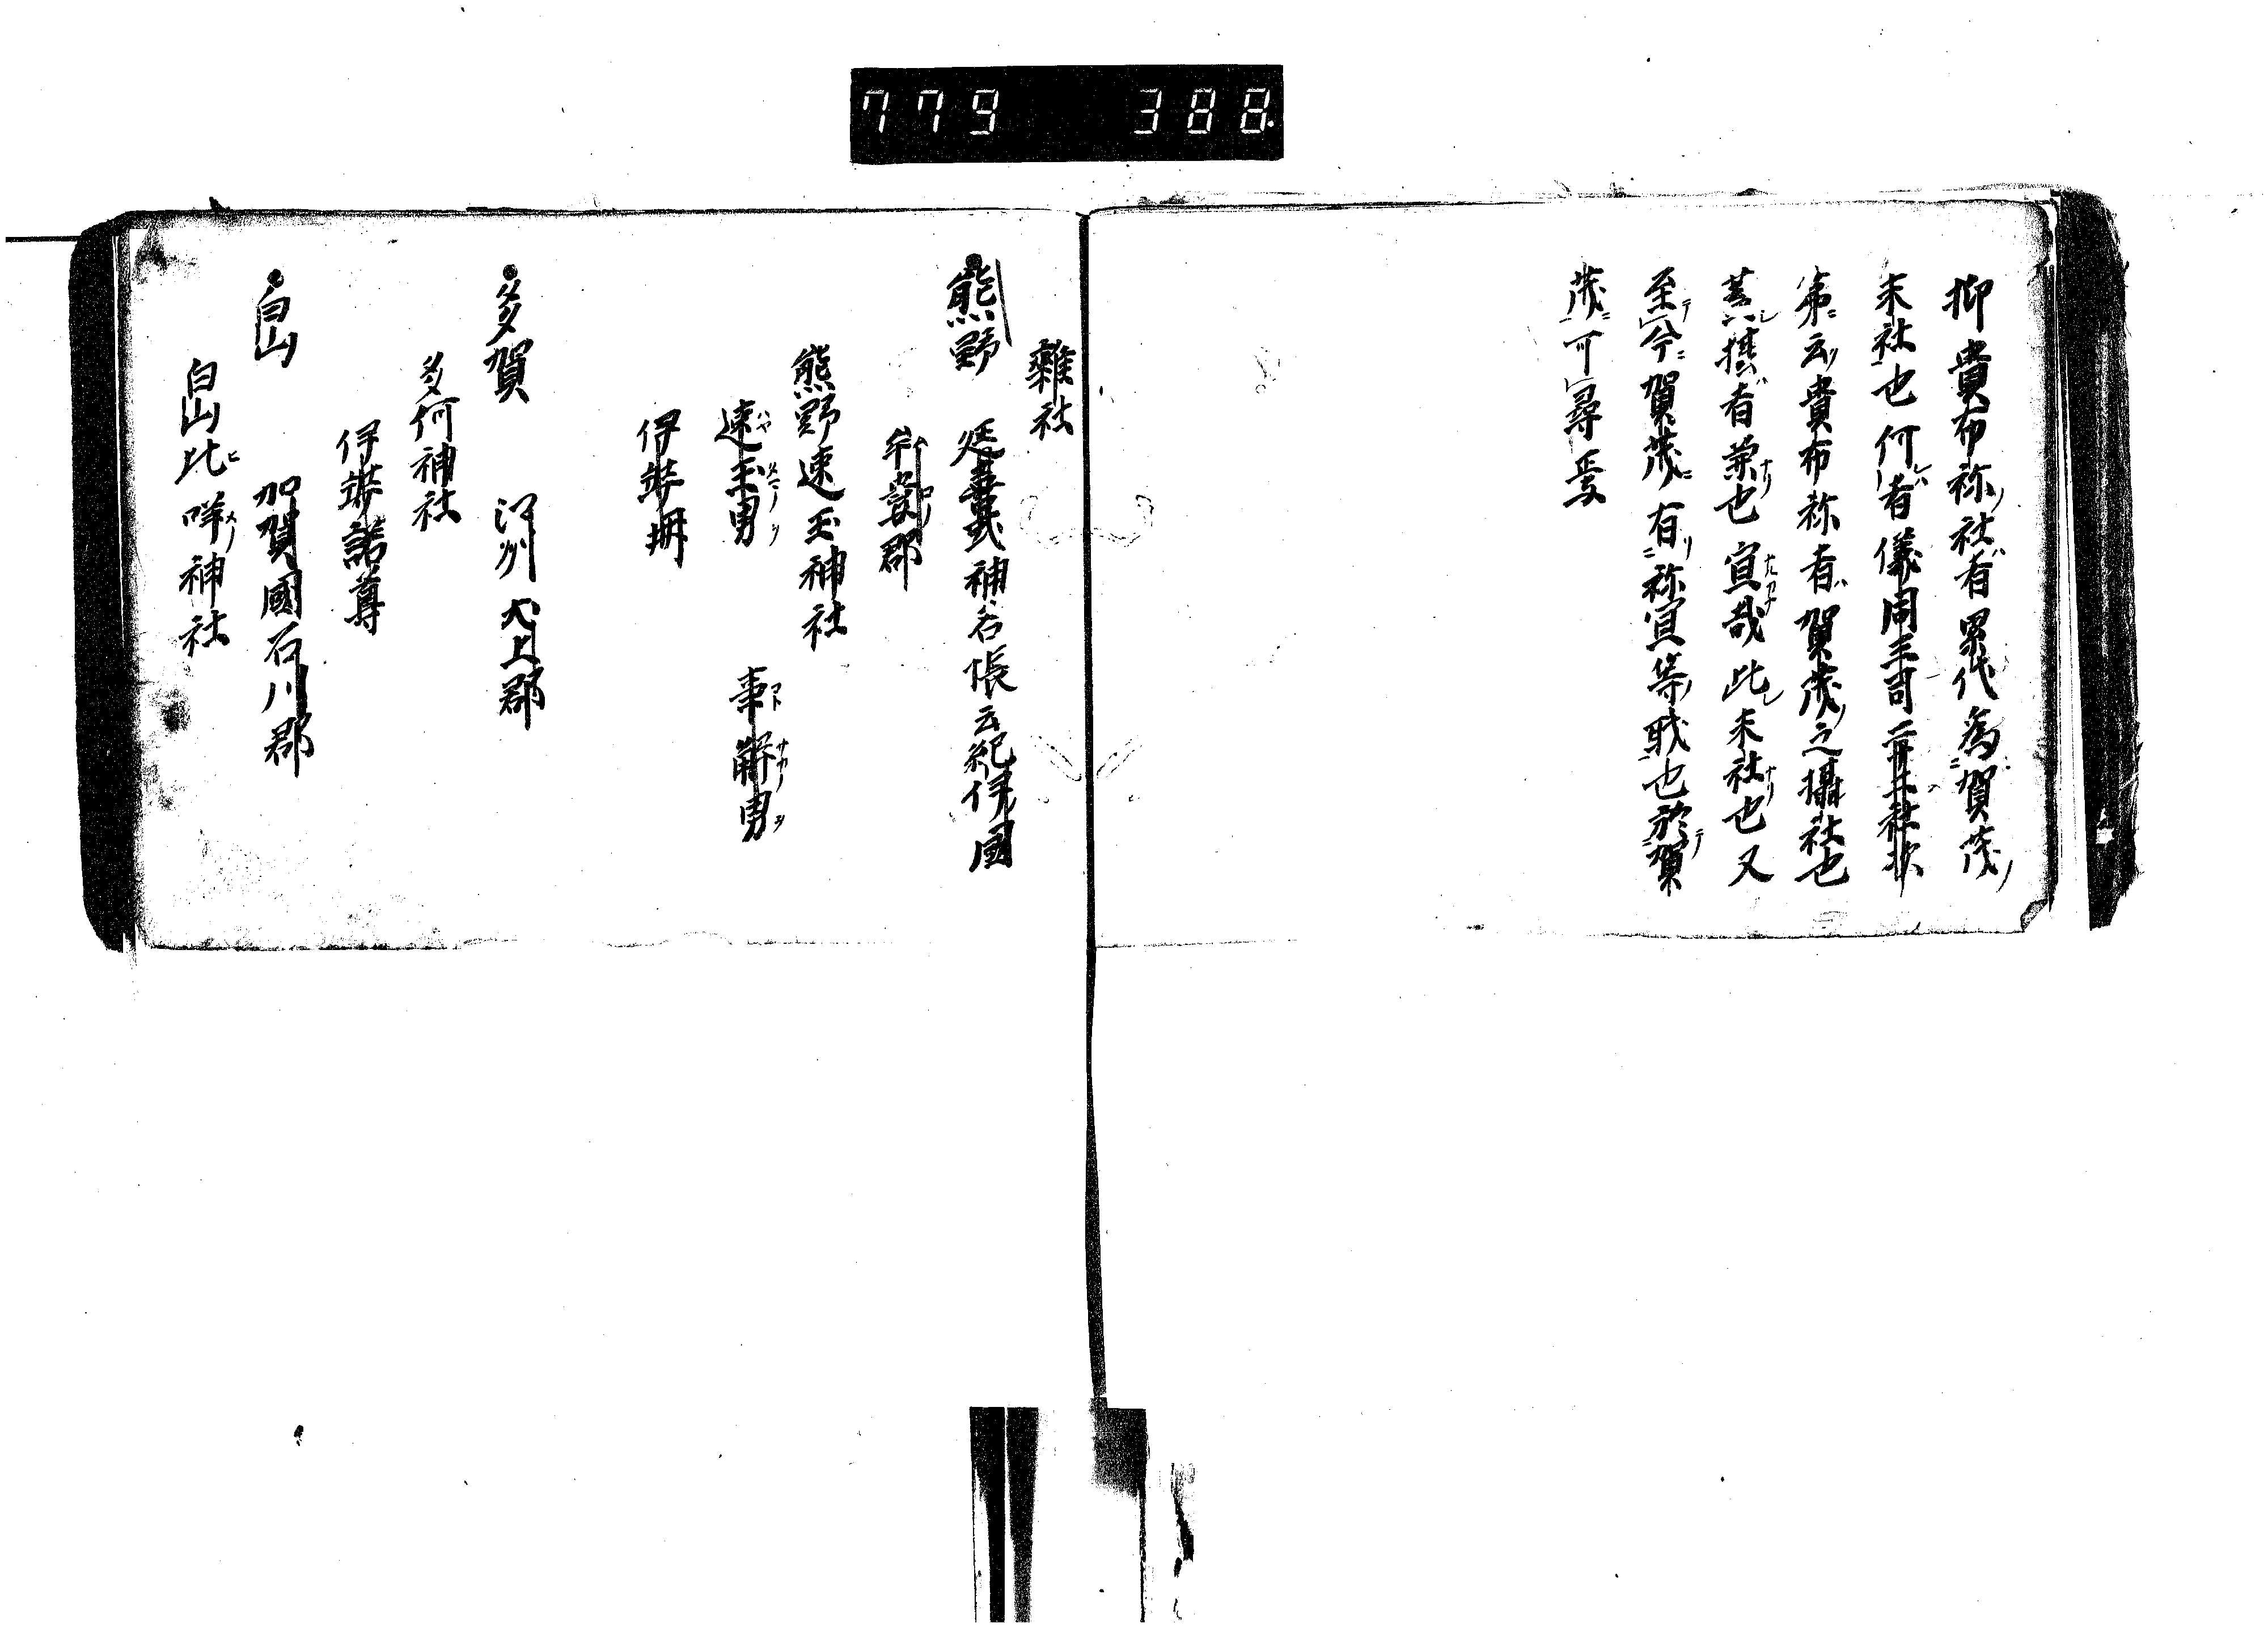 779 388
抑貴布祢ノ社者累代為賀茂ノ
末社也何者儀同三司二廿二社次
第ニ云ク貴布祢者賀茂ノ之攝社也
蓋シ攝者兼也宜哉此レ末社也又
至今ニ賀茂ニ有リ祢宜等職也於テ賀
茂ニ可尋焉
雜社
熊野 延喜式神名帳云紀伊國
牟婁郡
熊野速玉神社
速玉男 事解男
伊弉冊
多賀 江州犬上郡
多何神社
伊弉諾尊
白山 加賀國石川郡
白山比咩神社